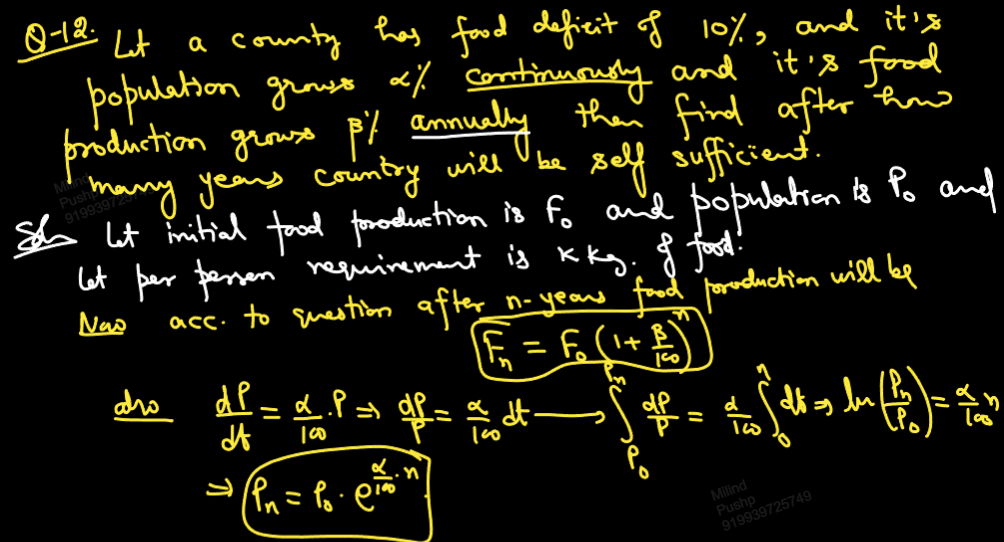 Q-12. Let a county has food deficit of 10%, and it's
population grows α% continuously and it's food
production grows β% annually then find after how
many years country will be self sufficient.
Soln Let initial food production is F₀ and population is P₀ and
let per person requirement is K kg. of food.
Now acc. to question after n-years food production will be
Fₙ = F₀ (1 + β/100)ⁿ
also dP/dt = α/100 . P ⇒ dP/P = α/100 dt → ∫_{P₀}^{Pₙ} dP/P = α/100 ∫_0^n dt ⇒ ln(Pₙ/P₀) = α/100 n
⇒ Pₙ = P₀ . e^{α/100 . n}
Milind
Pushp
919939725749